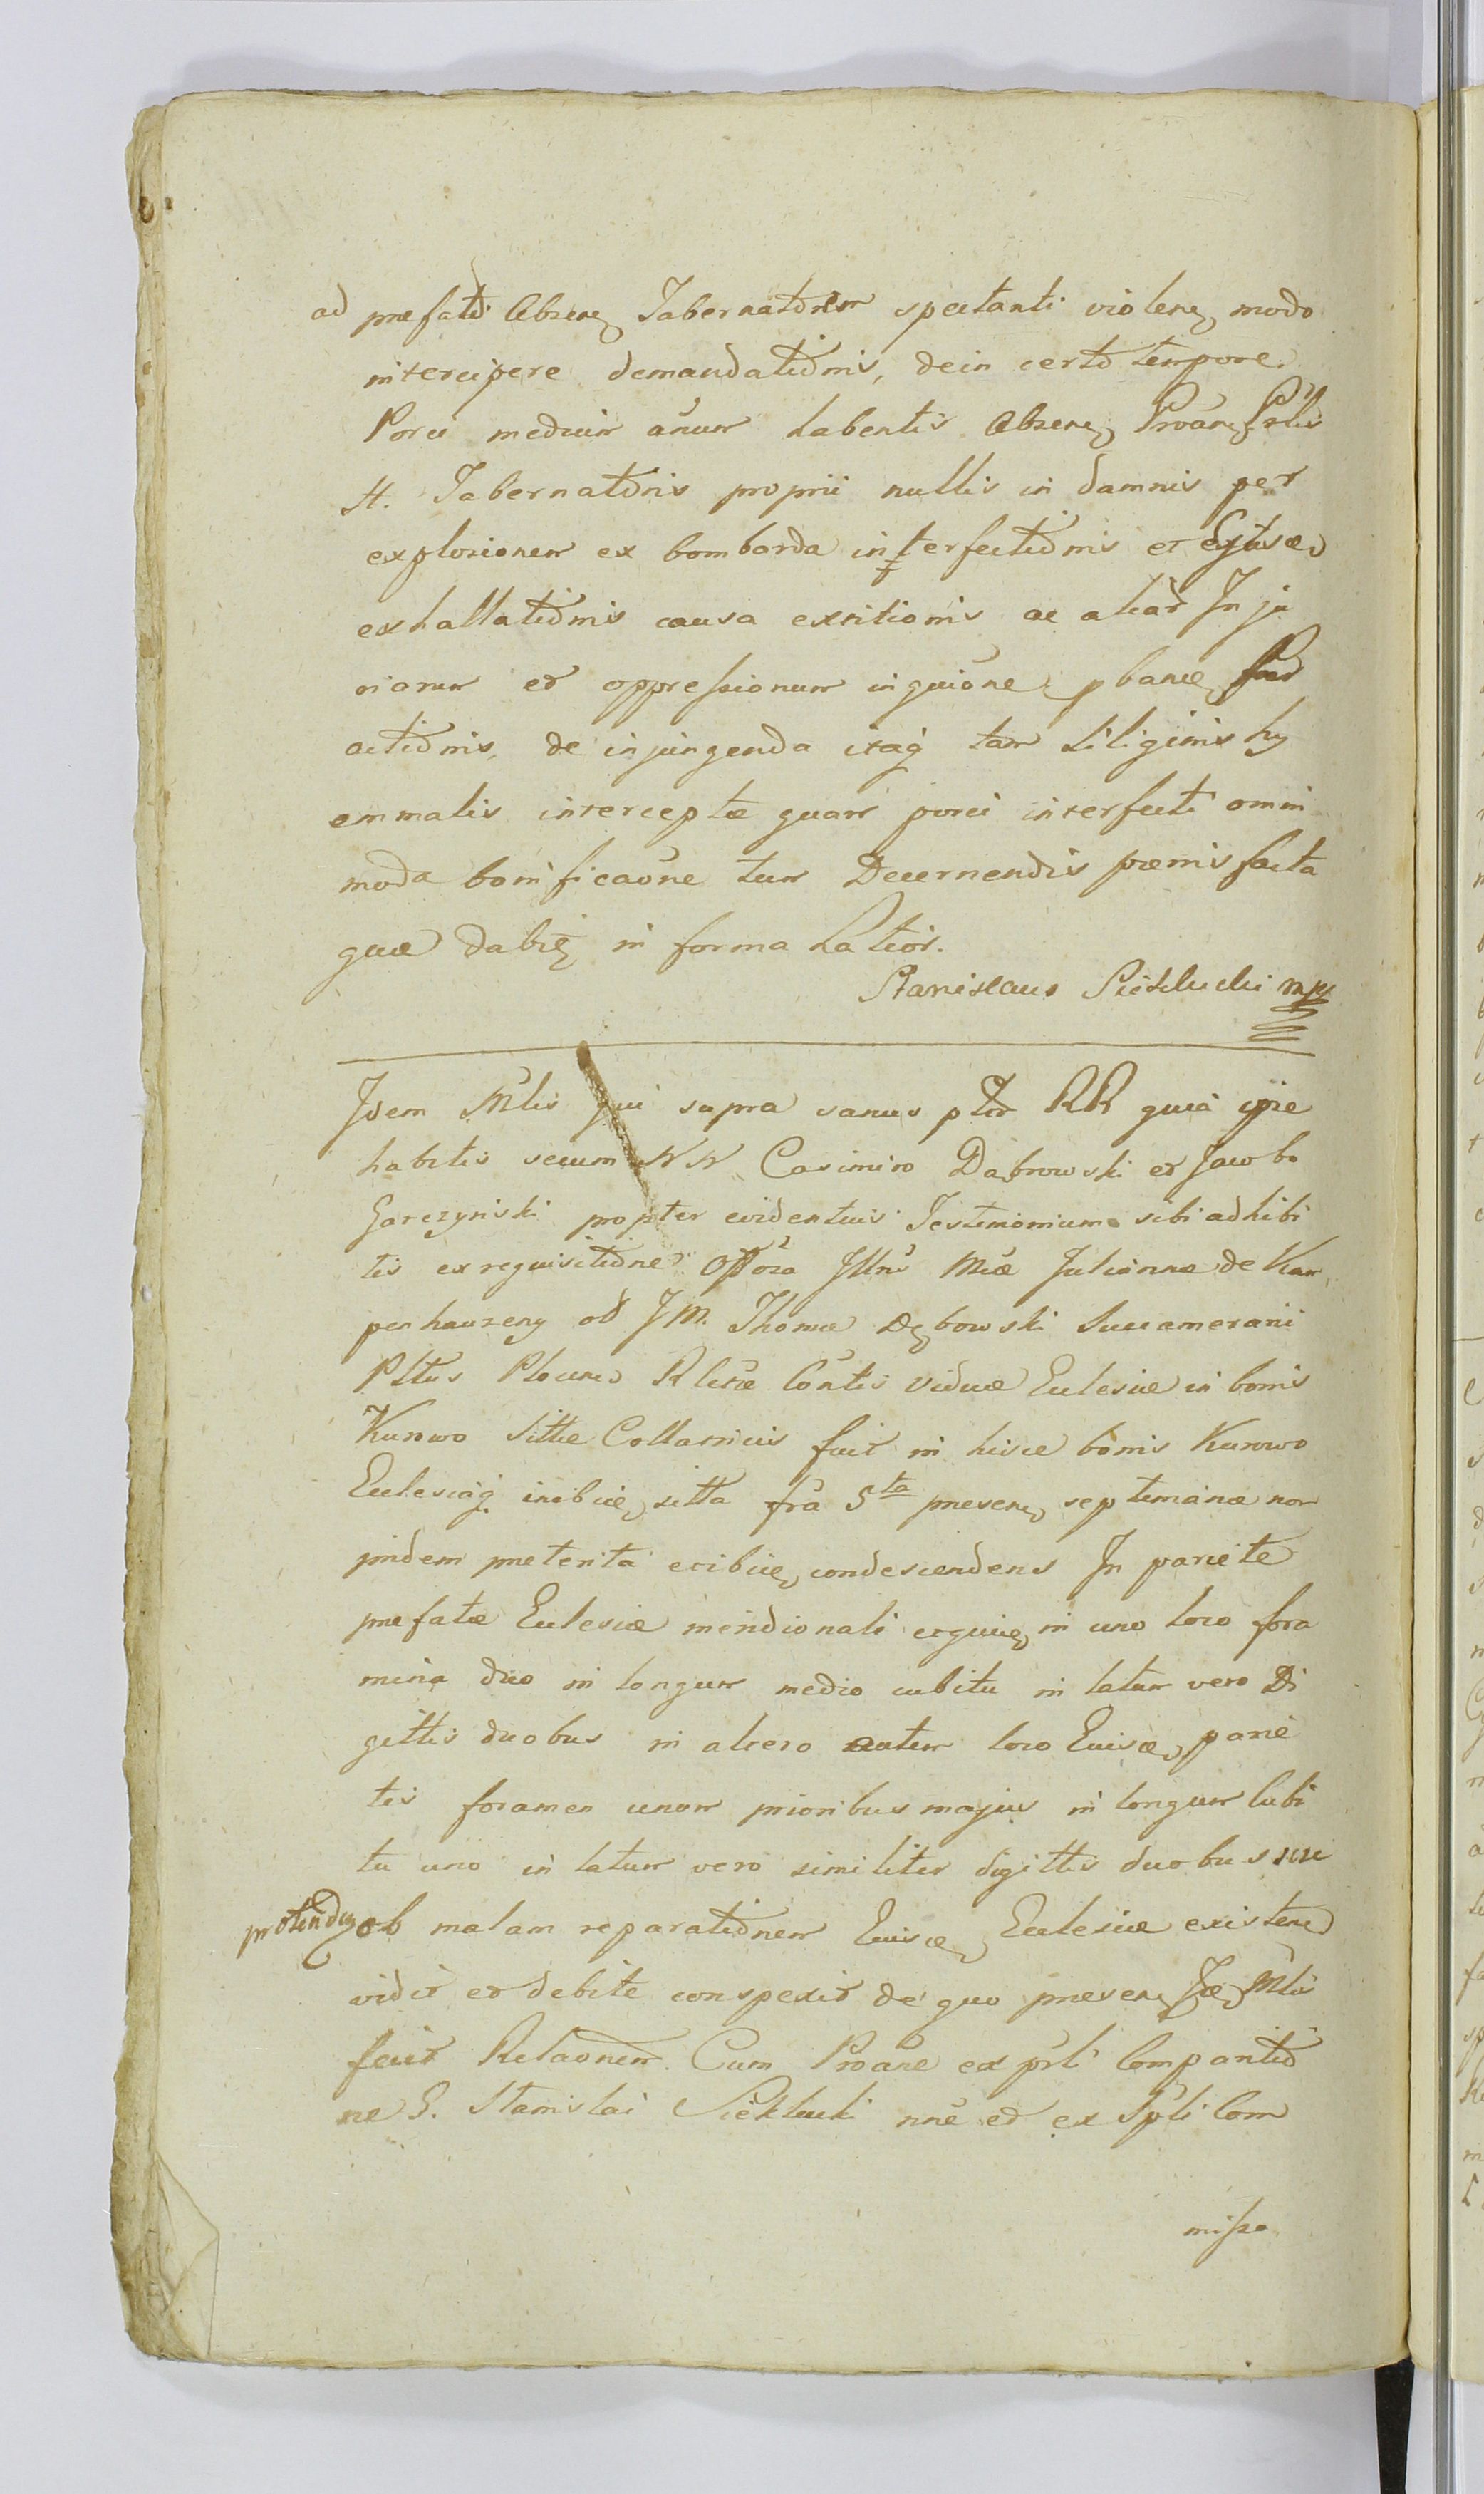 ad prefati Absenę Tabernatorem spectanti violenę modo
intercipere demandationis, dein certo tempore
Porci medium anum habentis Absenę Proanę Prlis
H. Tabernatoris proprii nullis in damnis per
explosionem ex bombarda interfectionis et Ejusæ
exhallationis causa exsitionis ac aliar Inju
riarum et oppressionum inquione pbanæ
actionis, de injungenda itaq tam siliginis hy
emmalis interceptæ quam porci interfecti omni
moda bonificaone tum Decernendis pœnis facta
que dabię in forma Latior.
Stanislaus Siekłucki mpr
Idem Mlis qui supra sanus ptor RR quia ipse
habitis secum NN Casimiro Dąbrowski et Jacobo
Garczyński propter evidentius Testimonium sibi adhibi
tis ex requisitione Illris Mæ Julianna de Kam
penhauzeny od J M. Thomæ Dębowski Succamerarii
Pltus Plocens Rlictæ Contis viduæ Eclesiæ in bonis
Kurowo sittæ Collatricis fuit in hisce bonis Kurowo
Eclesiaq inibiię sitta fra 5ta presenę septimanæ non
pridem preterita ecibiię condescendens In pariete
prefatæ Eclesiæ meridionali in uno loco fora
mina duo in longum medio cubitu in latum vero Di
gittis duobus in altero autem loco Euisæ parie
tis foramen unum prioribus majus in longum Cubi
tu uno in latum vero similiter digittis duobus sese
protendę ob malam reparationem Euisæ Eclesiæ existenę
vidit et debite conspexit de quo presenę Mlis
fecit Relaonem. Cum Proane ex prli Comparitio
ne G. Stanislai Siekłucki nne et ex Spli Com
misso